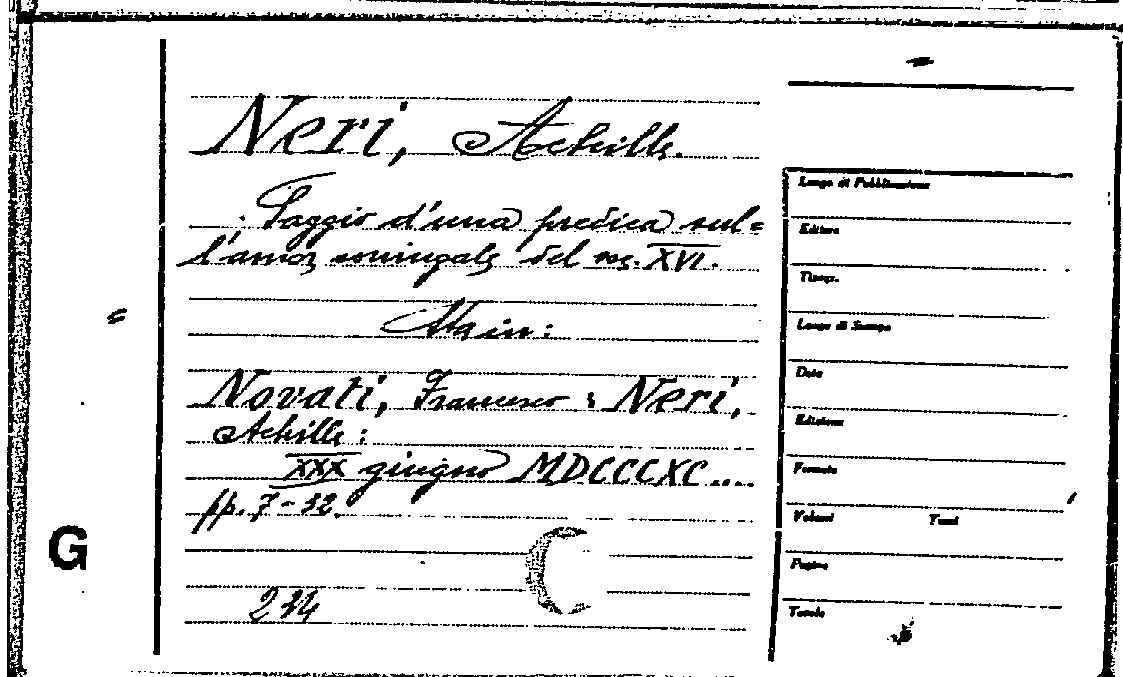 Neri, Achille.
Saggio d'una predica sul=
l'amor coniugale del sec. XVI.
Novati, Francesco : Neri,
Achille :
XXX giugno MDCCCXC ....
pp. 7-32.
234
G
Luogo di Pubblicazione
Editore
Tipogr.
Luogo di Stampa
Data
Edizione
Formato
Volumi Tomi
Pagine
Tavole